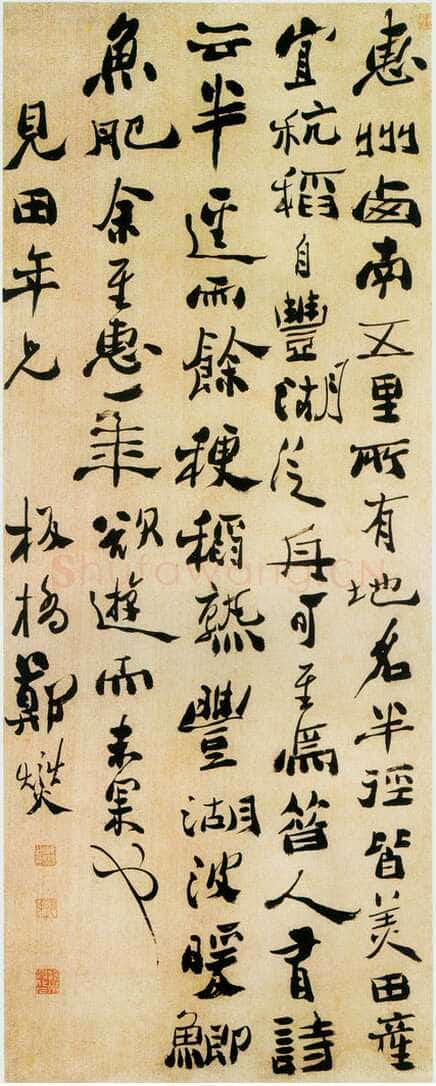 惠州西南五里所有地名半徑皆美田産
宜秔稻自豐湖泛舟可至焉昔人有詩
云半逕雨餘稉稻熟豐湖波暖鯽
魚肥余至惠一年欲遊而未果也
見田年兄 板橋鄭燮
Shufawang.CN